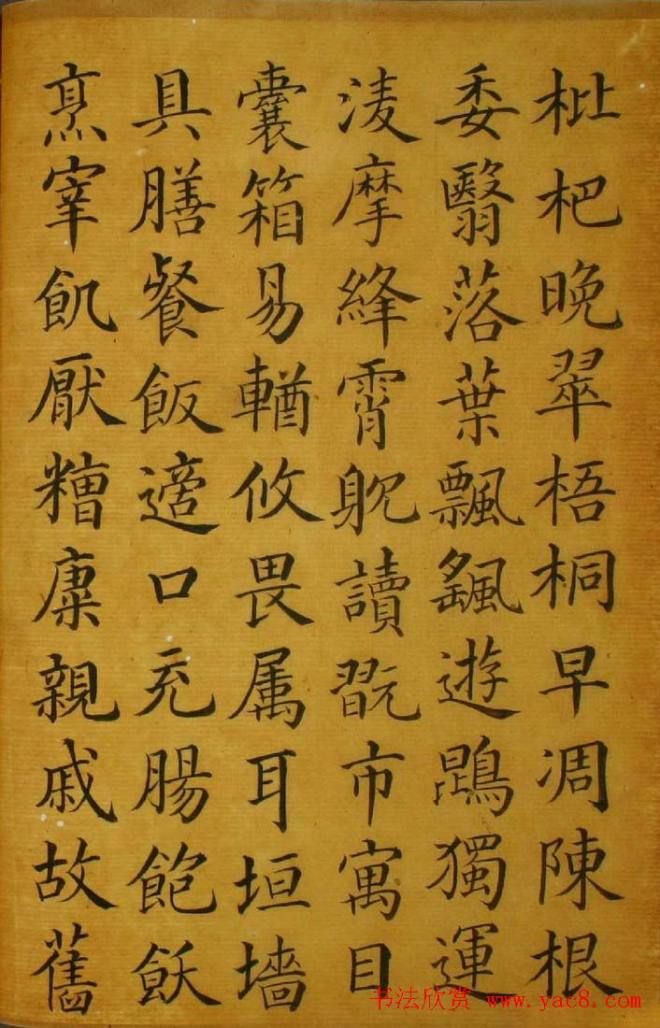 枇杷晚翠梧桐早凋陳根
委翳落葉飄颻遊鵾獨運
凌摩絳霄躭讀翫市寓目
囊箱易輶攸畏属耳垣墻
具膳餐飯適口充腸飽飫
烹宰飢厭糟糠親戚故舊
书法欣赏 www.yac8.com